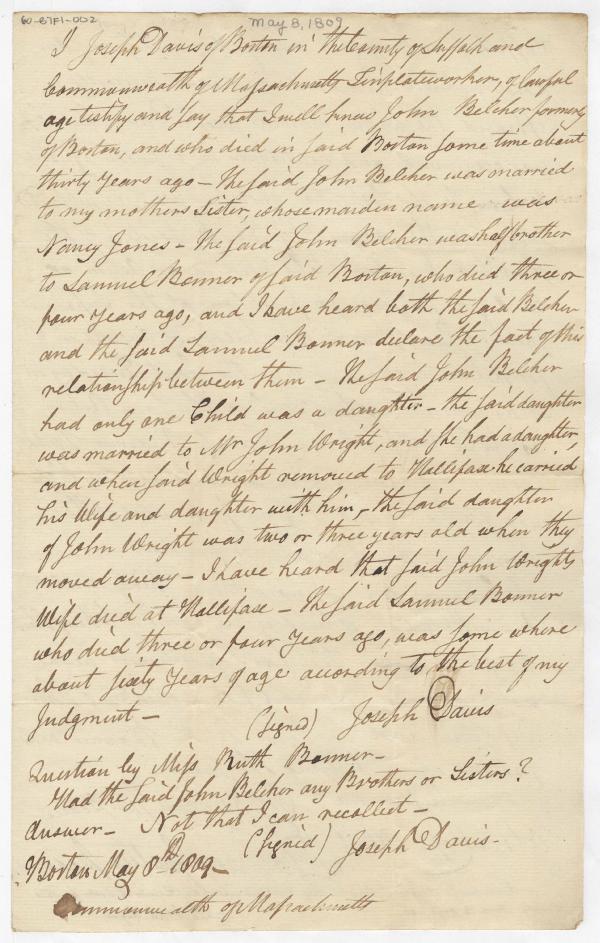 60-87F1-002
May 8, 1809
I Joseph Davis of Boston in the County of Suffolk and
Commonwealth of Massachusetts Tinplateworker, of lawful
age testify and say that I well knew John Belcher formerly
of Boston, and who died in said Boston some time about
thirty years ago – The said John Belcher was married
to my mothers Sister, whose maiden name was
Nancy Jones – The said John Belcher was half brother
to Samuel Bonner of said Boston, who died three or
four years ago, and I have heard both the said Belcher
and the said Samuel Bonner declare the fact of this
relationship between them – The said John Belcher
had only one Child was a daughter – the said daughter
was married to Mr John Wright, and she had a daughter,
and when said Wright removed to Hallifase he carried
his Wife and daughter with him, the said daughter
of John Wright was two or three years old when they
moved away – I have heard that said John Wrights
Wife died at Hallifase – The said Samuel Bonner
who died three or four years ago, was some where
about sixty years of age according to the best of my
Judgment –
(signed) Joseph Davis
Question by Miss Ruth Bonner –
Had the said John Belcher any Brothers or Sisters?
Answer – Not that I can recollect –
(signed) Joseph Davis –
Boston May 8th 1809 –
Commonwealth of Massachusetts